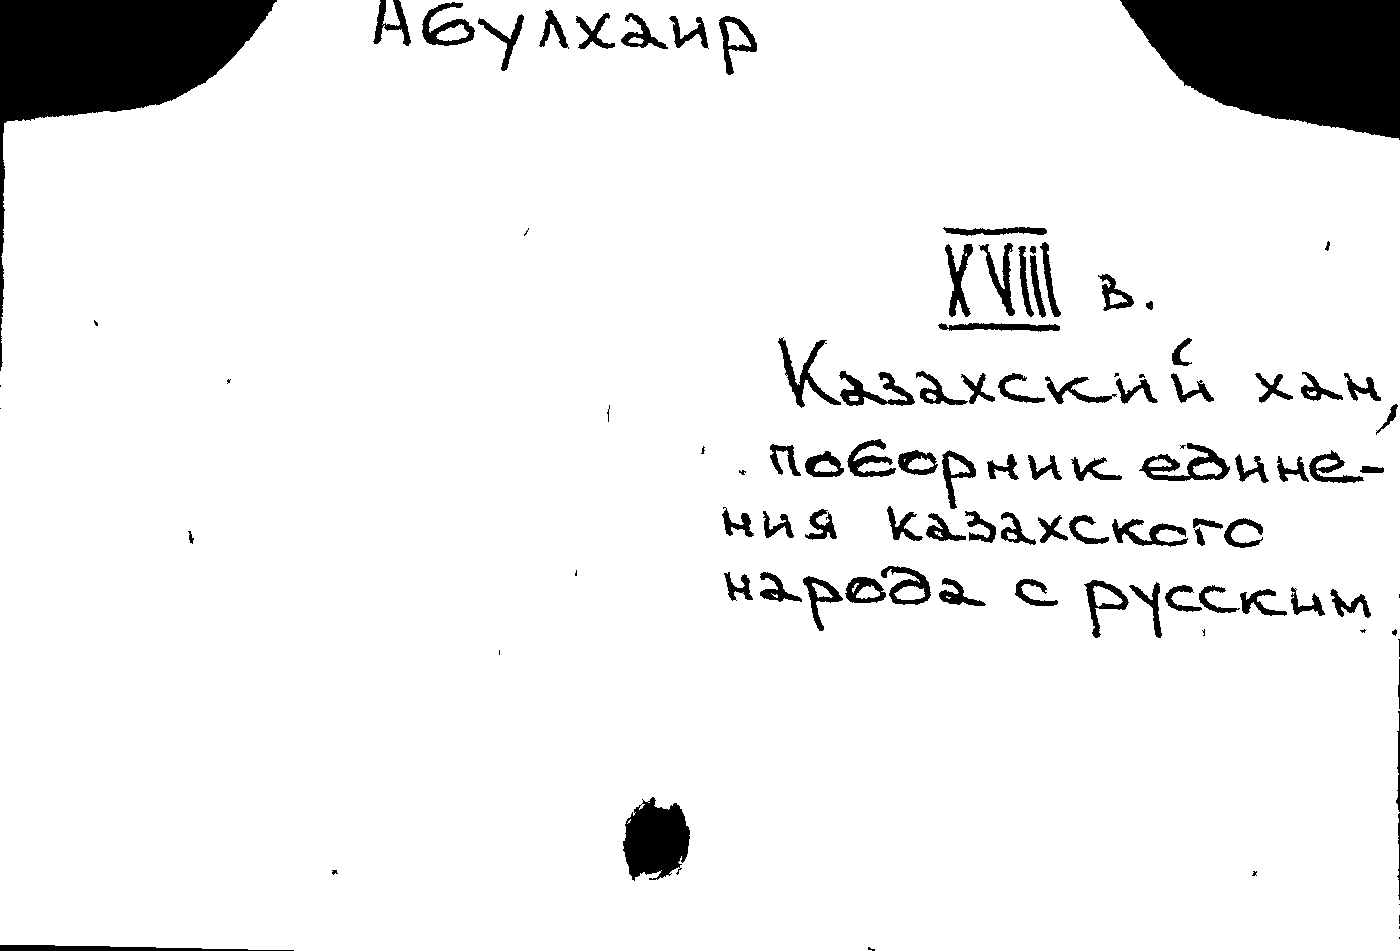 Абулхаир
XVIII в.
Казахский хан,
поборник едине-
ния казахского
народа с русским.